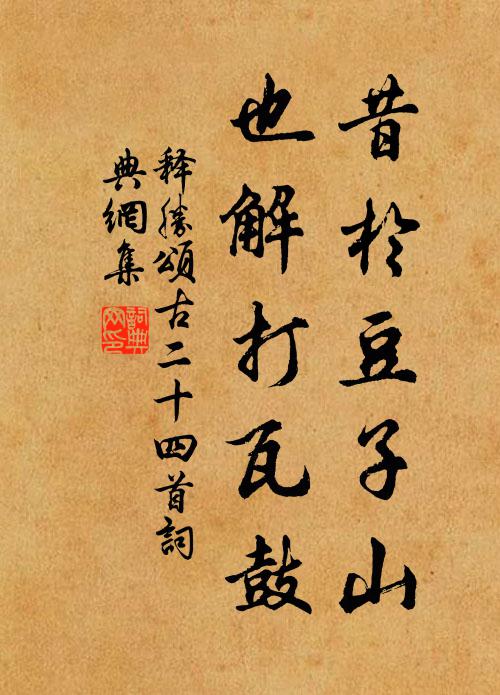 昔於豆子山
也解打瓦鼓
释勝頌古二十四首詞
典網集
詞典網印